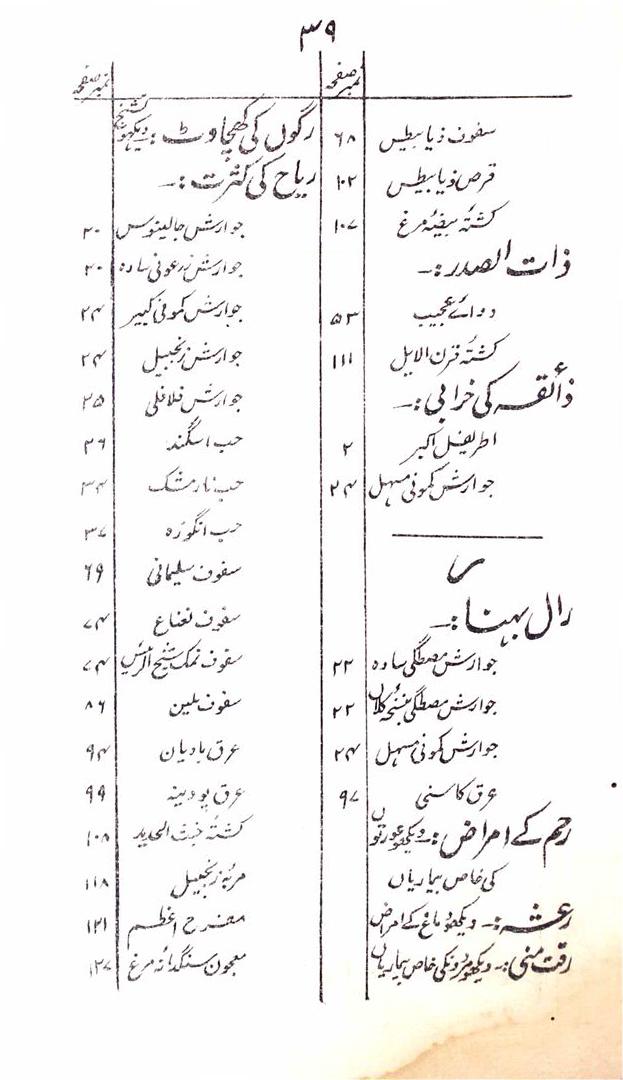 ۳۹
نمبر صفحہ
سفوف ذیابیطیس ۶۸
قرص ذیابیطیس ۱۰۲
کشتہ بیضۂ مرغ ۱۰۷
ذات الصدر:۔
دوائے عجیب ۵۳
کشتہ قرن الایل ۱۱۱
ذائقہ کی خرابی:۔
اطریفل اکبر ۲
جوارش کمونی مسہل ۲۴
ر
رال بہنا:۔
جوارش مصطگی سادہ ۲۲
جوارش مصطگی بنسخہ کلاں ۲۲
جوارش کمونی مسہل ۲۴
عرق کاسنی ۹۷
رحم کے امراض:۔ دیکھو عورتوں
کی خاص بیماریاں
رعشہ:۔ دیکھو دماغ کے امراض
رقت منی:۔ دیکھو مردونکی خاص بیماریاں
نمبر صفحہ
رگوں کی کھچاوٹ:۔ دیکھو تشنج
ریاح کی کثرت:۔
جوارش جالینوس ۲۰
جوارش زرعونی سادہ ۲۰
جوارش کمونی کبیر ۲۴
جوارش زنجبیل ۲۴
جوارش فلافلی ۲۵
حب اسگند ۲۶
حب نارمشک ۳۴
حب انگوزہ ۳۷
سفوف سلیمانی ۶۹
سفوف نعناع ۷۴
سفوف نمک شیخ الرئیس ۷۴
سفوف ملین ۸۶
عرق بادیان ۹۴
عرق پودینہ ۹۹
کشتہ خبث الحدید ۱۰۸
مربہ زنجبیل ۱۱۸
مفرح اعظم ۱۲۱
معجون سنگدانہ مرغ ۱۲۷